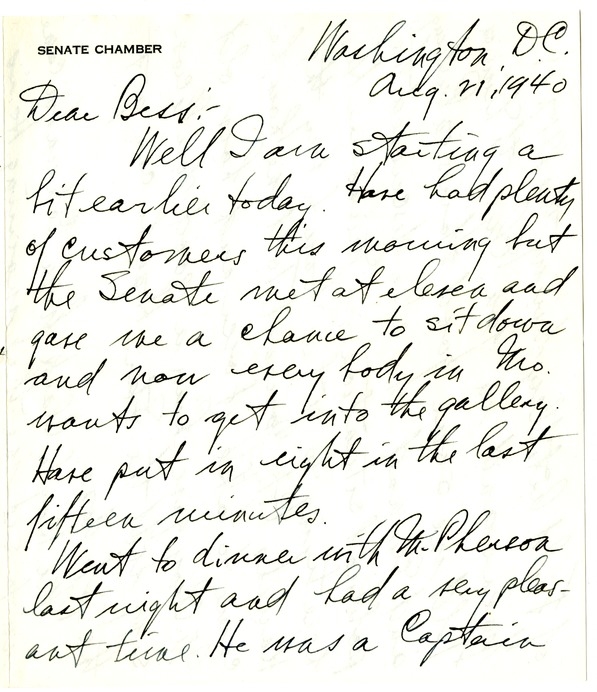 SENATE CHAMBER
Washington, D.C.
Aug. 21, 1940
Dear Bess:-
Well I am starting a
bit earlier today. Have had plenty
of customers this morning but
the Senate met at eleven and
gave me a chance to sit down
and now every body in Mo.
wants to get into the gallery.
Have put in eight in the last
fifteen minutes.
Went to dinner with McPherson
last night and had a very pleas-
ant time. He was a Captain